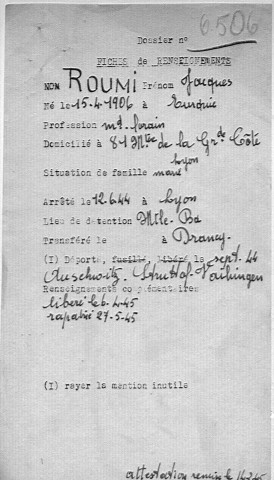 6506
Dossier n°
FICHES de RENSEIGNEMENTS
NOM ROUMI Prénom Jacques
Né le 15-4-1906 à Turquie
Profession md. forain
Domicilié à 81 Mtée de la Gr.de Côte
Lyon
Situation de famille marié
Arrêté le 12.6.44 à Lyon
Lieu de detention Mtluc Ba
Transféré le à Drancy-
(I) Déporté, fusillé, libéré le sept. 44
Auschwitz. Struttof. Vaihingen
Renseignements complémentaires
libéré le 6-4-45
rapatrié 27-5-45
(I) rayer la mention inutile
attestation remise le